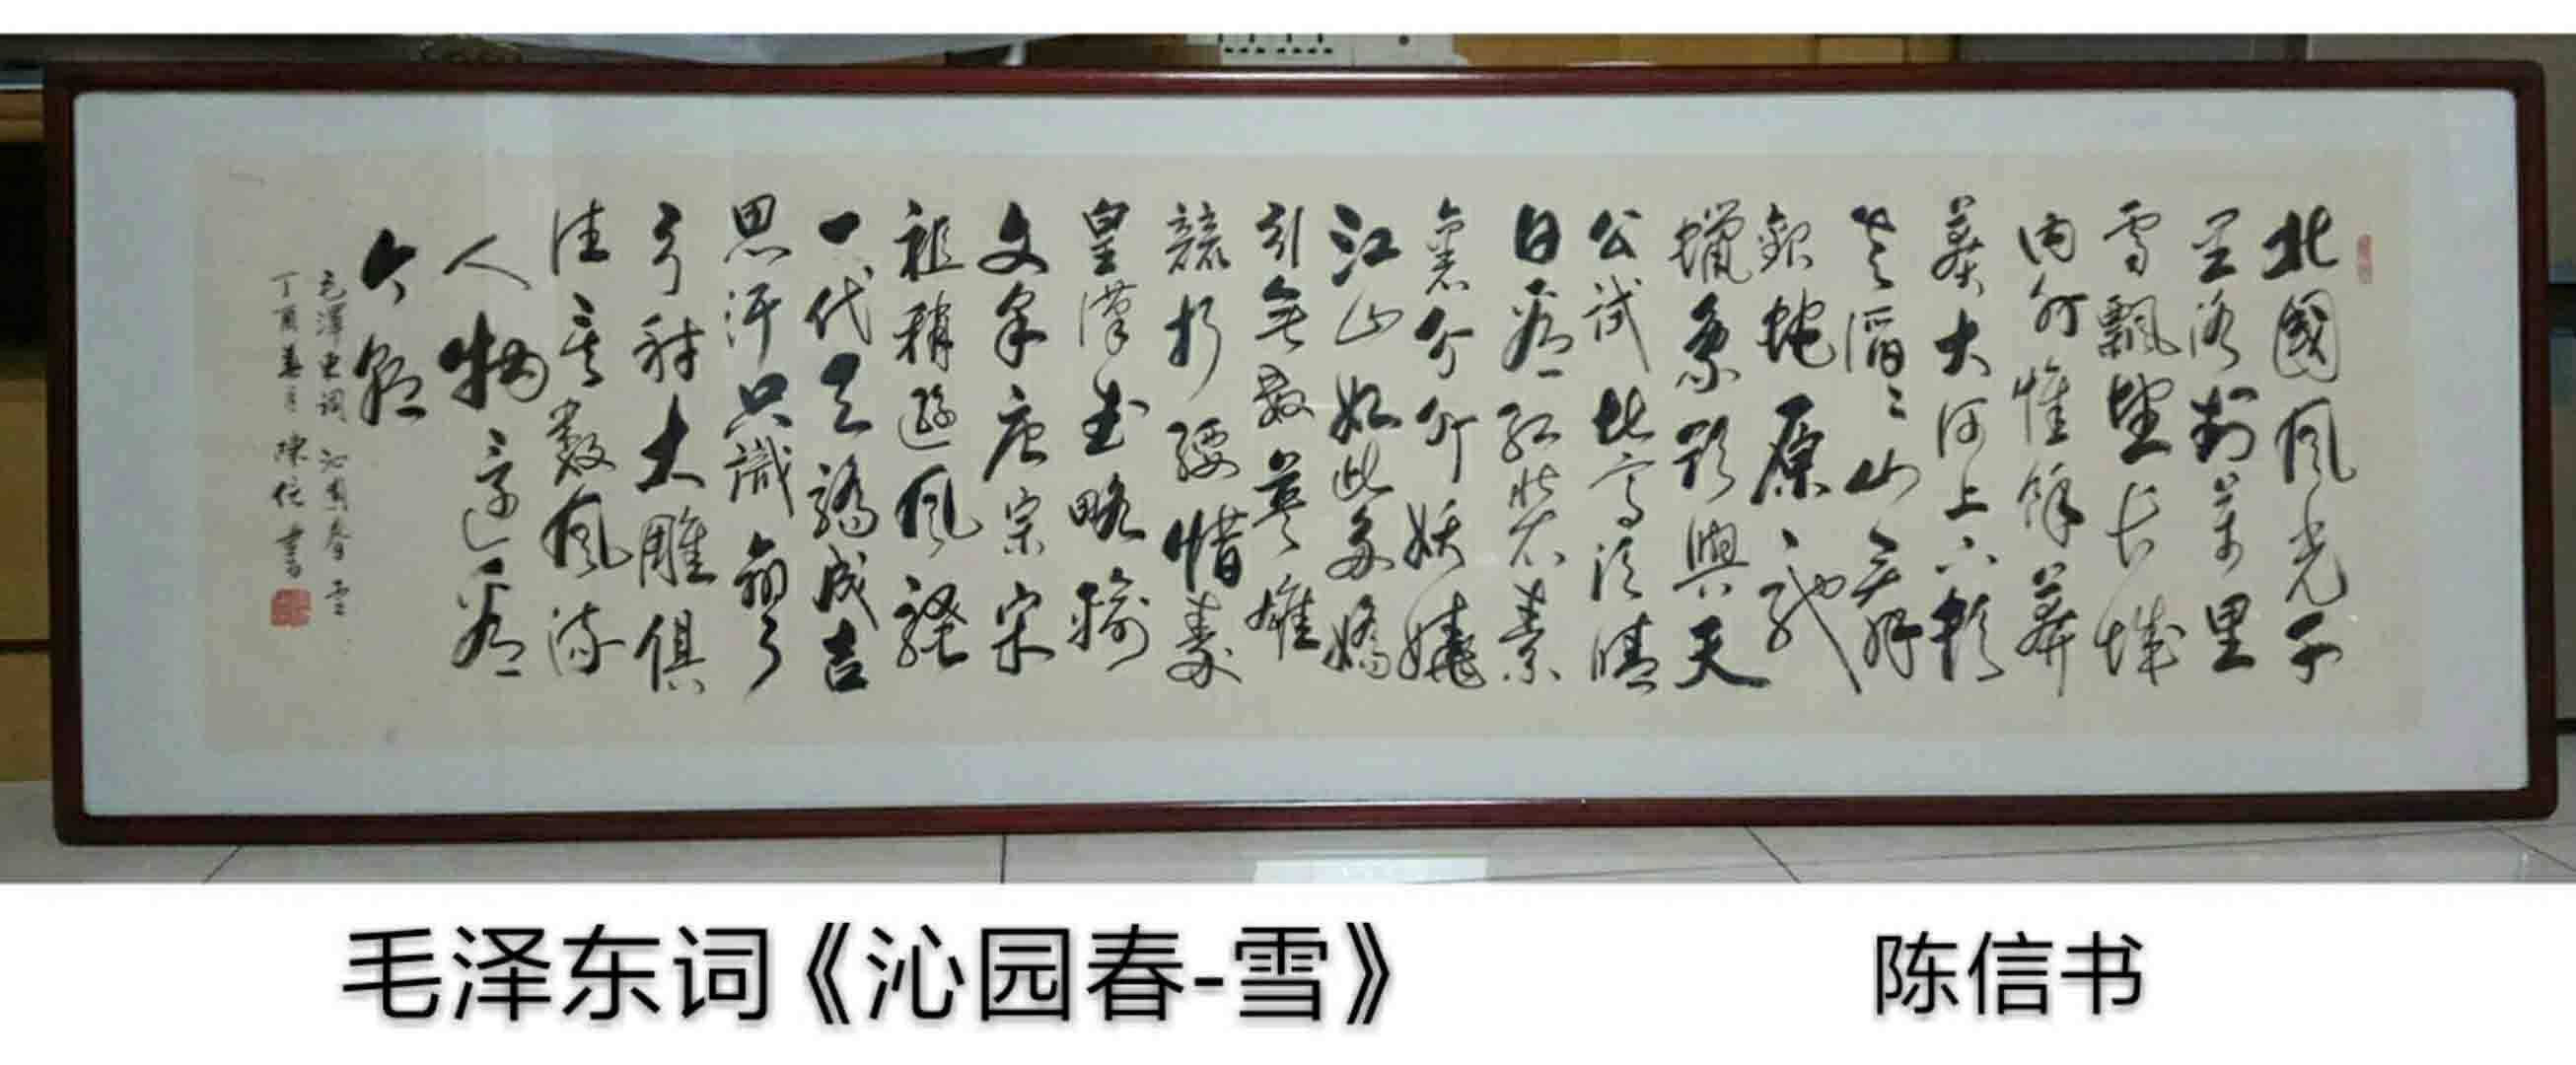 北國風光千
里冰封萬里
雪飄望长城
内外惟餘莽
莽大河上下頓
失滔〻山舞
銀蛇原馳
蠟象欲與天
公試比高須晴
日看红装素
裹分外妖嬈
江山如此多嬌
引無數英雄
競折腰惜秦
皇漢武略輸
文采唐宗宋
祖稍遜風騷
一代天驕成吉
思汗只識彎
弓射大雕俱
往矣數風流
人物還看
今朝
毛澤東詞 沁園春 雪
丁酉春月 陳信書
毛泽东词《沁园春-雪》
陈信书